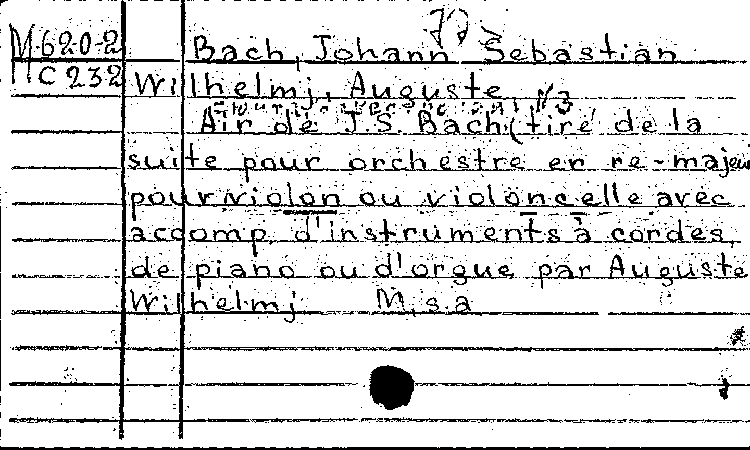 M620-2 Bach, Johann Sebastian
C232 Wilhelmj, Auguste
Air de J.S. Bach (tiré de la
suite pour orchestre en re-majeur
pour violon ou violoncelle avec
accomp. d'instruments à cordes,
de piano ou d'orgue par Auguste
Wilhelmj M, s.a